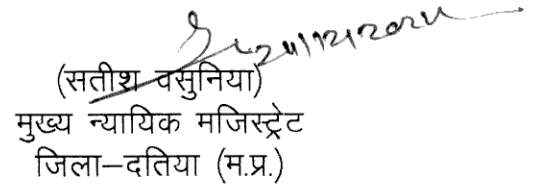 (सतीश वसुनिया)
मुख्य न्यायिक मजिस्ट्रेट
जिला–दतिया (म.प्र.)